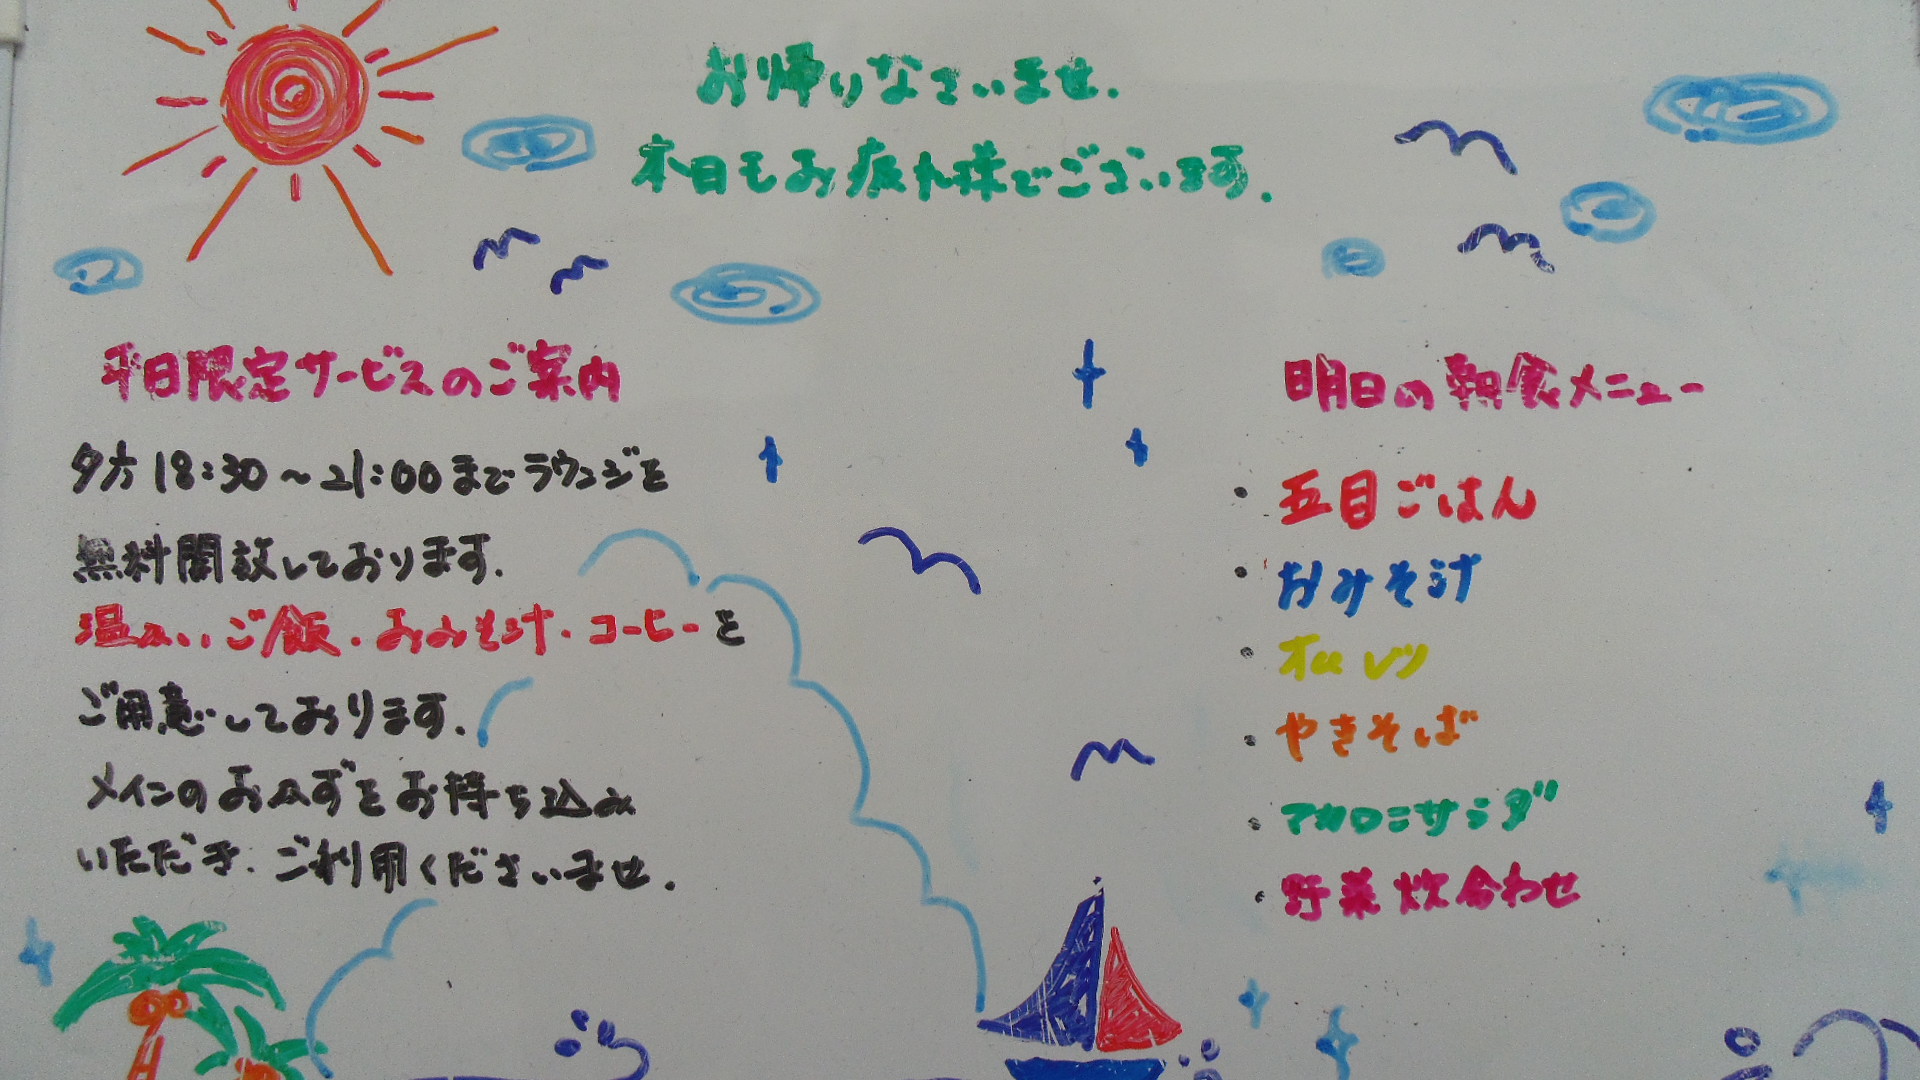 お帰りなさいませ.
本日もお疲れ様でございます.
平日限定サービスのご案内
夕方18:30～21:00までラウンジを
無料開放しております.
温かいご飯・おみそ汁・コーヒーを
ご用意しております.
メインのおかずをお持ち込み
いただき.ご利用くださいませ.
明日の朝食メニュー
・五目ごはん
・おみそ汁
・オムレツ
・やきそば
・マカロニサラダ
・野菜炊合わせ